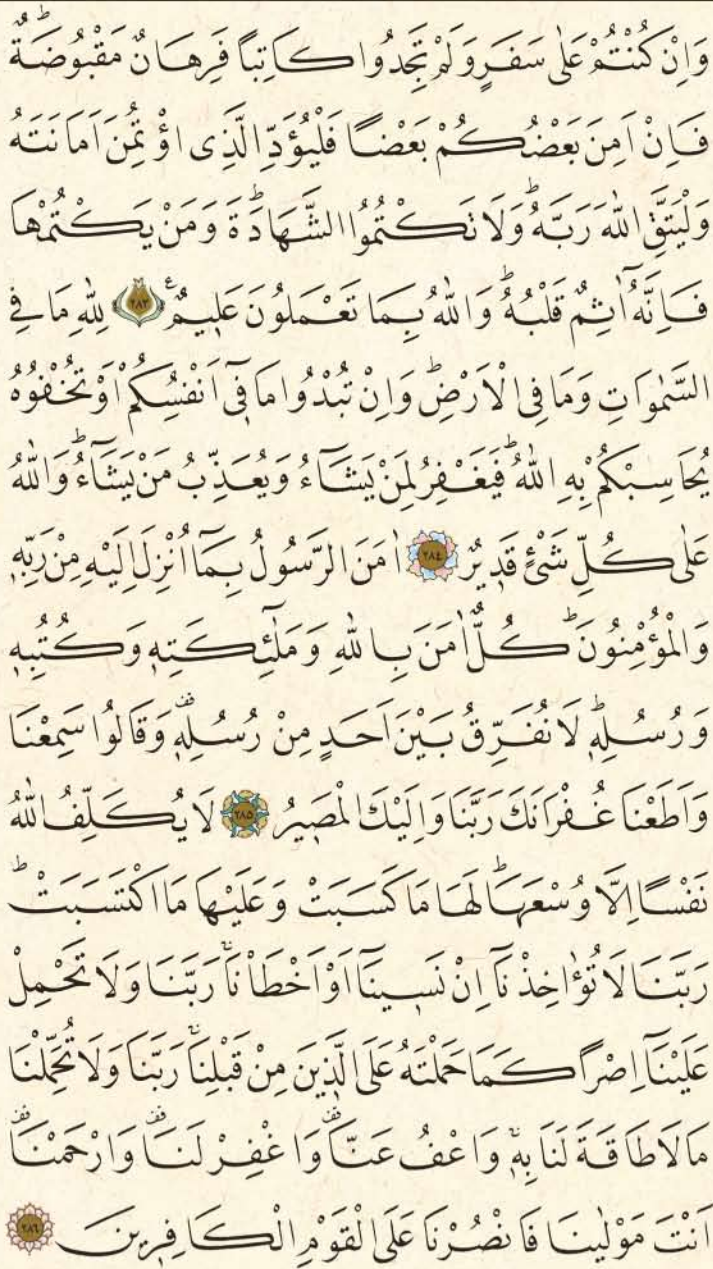 وَاِنْ كُنْتُمْ عَلٰى سَفَرٍ وَلَمْ تَجِدُوا كَاتِبًا فَرِهَانٌ مَقْبُوضَةٌۜ
فَاِنْ اَمِنَ بَعْضُكُمْ بَعْضًا فَلْيُؤَدِّ الَّذِى اؤْتُمِنَ اَمَانَتَهُ
وَلْيَتَّقِ اللّٰهَ رَبَّهُۜ وَلَا تَكْتُمُوا الشَّهَادَةَۜ وَمَنْ يَكْتُمْهَا
فَاِنَّهُٓ اٰثِمٌ قَلْبُهُۜ وَاللّٰهُ بِمَا تَعْمَلُونَ عَلٖيمٌ ع ٢٨٣ لِلّٰهِ مَا فِى
السَّمٰوَاتِ وَمَا فِى الْاَرْضِۜ وَاِنْ تُبْدُوا مَا فٖٓى اَنْفُسِكُمْ اَوْ تُخْفُوهُ
يُحَاسِبْكُمْ بِهِ اللّٰهُۜ فَيَغْفِرُ لِمَنْ يَشَٓاءُ وَيُعَذِّبُ مَنْ يَشَٓاءُۜ وَاللّٰهُ
عَلٰى كُلِّ شَیْءٍ قَدٖيرٌ ٢٨٤ اٰمَنَ الرَّسُولُ بِمَٓا اُنْزِلَ اِلَيْهِ مِنْ رَبِّهٖ
وَالْمُؤْمِنُونَۜ كُلٌّ اٰمَنَ بِاللّٰهِ وَمَلٰٓئِكَتِهٖ وَكُتُبِهٖ
وَرُسُلِهٖۜ لَا نُفَرِّقُ بَيْنَ اَحَدٍ مِنْ رُسُلِهٖ۠ وَقَالُوا سَمِعْنَا
وَاَطَعْنَا غُفْرَانَكَ رَبَّنَا وَاِلَيْكَ الْمَصٖيرُ ٢٨٥ لَا يُكَلِّفُ اللّٰهُ
نَفْسًا اِلَّا وُسْعَهَاۜ لَهَا مَا كَسَبَتْ وَعَلَيْهَا مَا اكْتَسَبَتْۜ
رَبَّنَا لَا تُؤَاخِذْنَٓا اِنْ نَسٖينَٓا اَوْ اَخْطَاْنَاۚ رَبَّنَا وَلَا تَحْمِلْ
عَلَيْنَٓا اِصْرًا كَمَا حَمَلْتَهُ عَلَى الَّذٖينَ مِنْ قَبْلِنَاۚ رَبَّنَا وَلَا تُحَمِّلْنَا
مَا لَا طَاقَةَ لَنَا بِهٖۚ وَاعْفُ عَنَّا۠ وَاغْفِرْ لَنَا۠ وَارْحَمْنَا۠
اَنْتَ مَوْلٰينَا فَانْصُرْنَا عَلَى الْقَوْمِ الْكَافِرٖينَ ٢٨٦